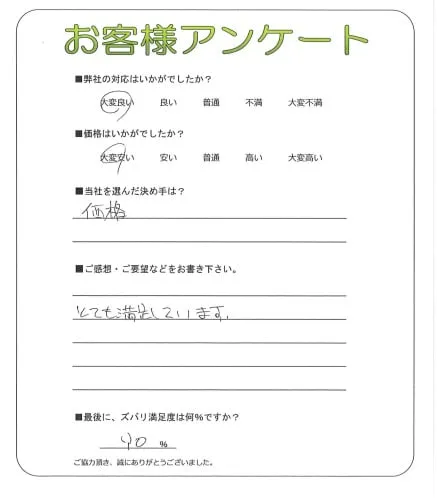 お客様アンケート
■弊社の対応はいかがでしたか？
大変良い 良い 普通 不満 大変不満
■価格はいかがでしたか？
大変安い 安い 普通 高い 大変高い
■当社を選んだ決め手は？
価格
■ご感想・ご要望などをお書き下さい。
とても満足しています。
■最後に、ズバリ満足度は何％ですか？
90 %
ご協力頂き、誠にありがとうございました。